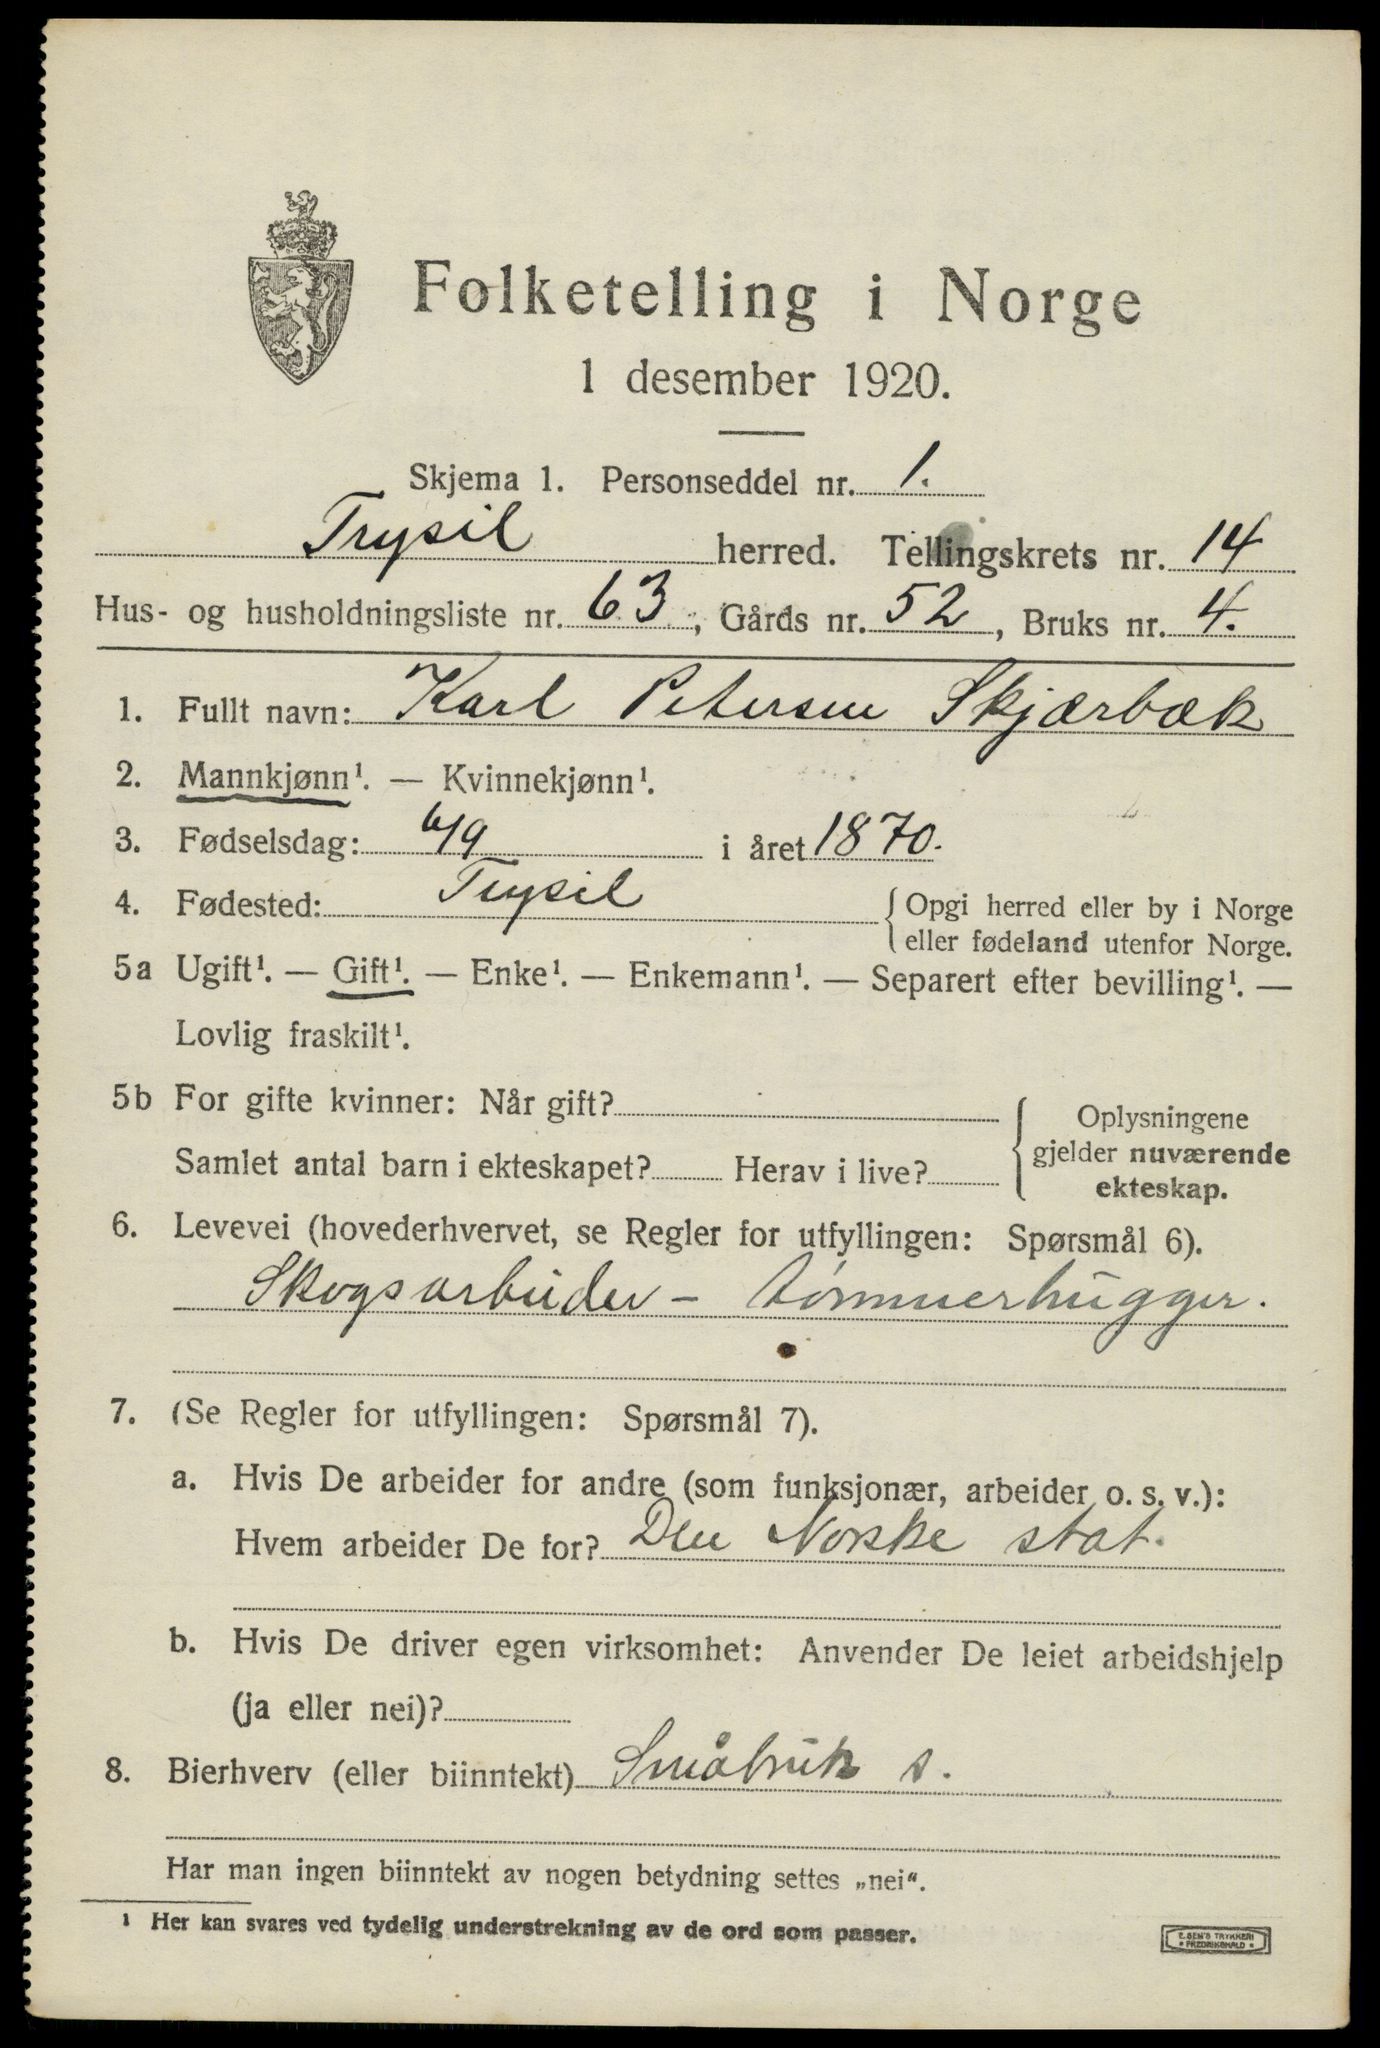 Folketelling i Norge
1 desember 1920.
Skjema 1. Personseddel nr. 1.
Trysil herred. Tellingskrets nr. 14
Hus- og husholdningsliste nr. 63, Gårds nr. 52, Bruks nr. 4.
1. Fullt navn: Karl Petersen Skjærbæk
2. Mannkjønn¹. — Kvinnekjønn¹.
3. Fødselsdag: 6/9 i året 1870.
4. Fødested: Trysil { Opgi herred eller by i Norge
eller fødeland utenfor Norge.
5a Ugift¹. — Gift¹. — Enke¹. — Enkemann¹. — Separert efter bevilling¹. —
Lovlig fraskilt¹.
5b For gifte kvinner: Når gift?
Samlet antal barn i ekteskapet? Herav i live?
Oplysningene
gjelder nuværende
ekteskap.
6. Levevei (hovederhvervet, se Regler for utfyllingen: Spørsmål 6).
Skogsarbeider - tømmerhugger.
7. (Se Regler for utfyllingen: Spørsmål 7).
a. Hvis De arbeider for andre (som funksjonær, arbeider o. s. v.):
Hvem arbeider De for? Den Norske stat.
b. Hvis De driver egen virksomhet: Anvender De leiet arbeidshjelp
(ja eller nei)?
8. Bierhverv (eller biinntekt) Småbruk s.
Har man ingen biinntekt av nogen betydning settes „nei“.
¹ Her kan svares ved tydelig understrekning av de ord som passer.
TRYKKERI
FREDRIKSHALD